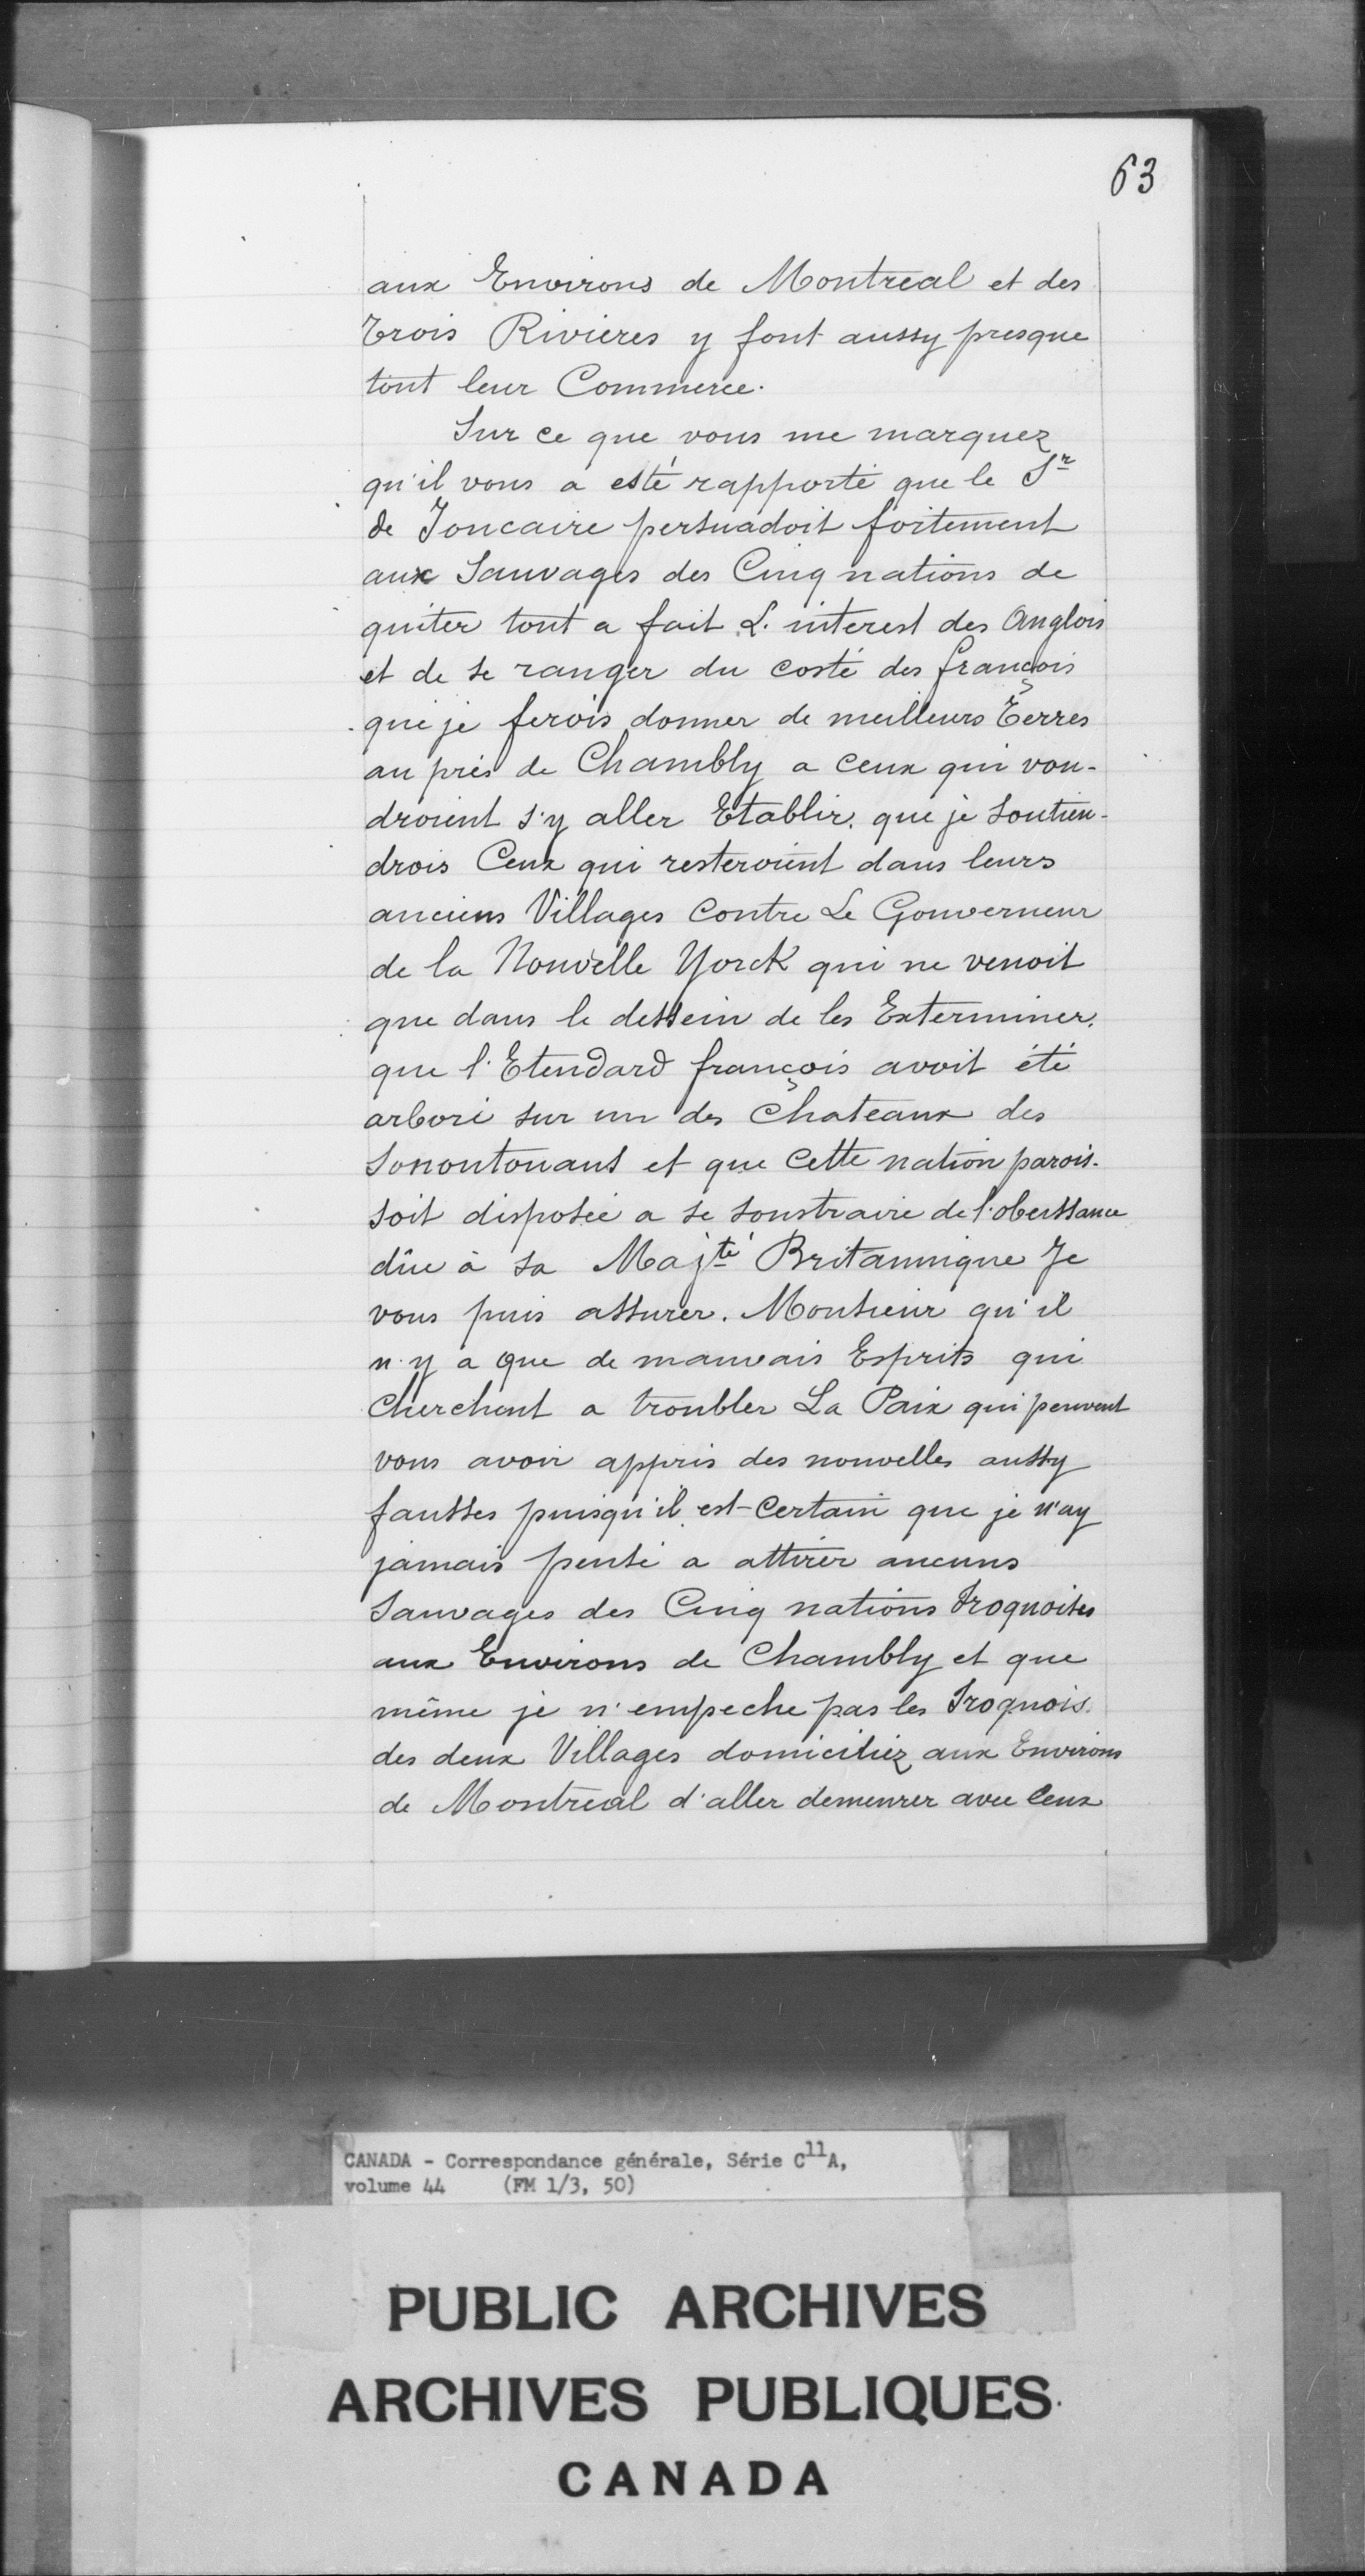 63
aux Environs de Montreal et des
Trois Rivieres y font aussy presque
tout leur Commerce.
Sur ce que vous me marquez
qu'il vous a esté rapporté que le Sr
de Joncaire persuadoit fortement
aux Sauvages des Cinq nations de
quiter tout a fait L'interest des Anglois
et de se ranger du costé des françois
que je ferois donner de meilleurs Terres
au près de Chambly a Ceux qui vou-
droient s'y aller Etablir. que je soutien-
drois Ceux qui resteroient dans leurs
anciens Villages Contre Le Gouverneur
de la Nouvelle Yorck qui ne venoit
que dans le dessein de les Exterminer.
que l'Etendard françois avoit été
arboré sur un des Chateaux des
Sonontouans et que Cette nation parois-
soit disposée a se soustraire de l'obeissance
dûe à sa Majté Britannique Je
vous puis assurer. Monsieur qu'il
n'y a que de mauvais Esprits qui
Cherchent a troubler La Paix qui peuvent
vous avoir appris des nouvelles aussy
fausses puisqu'il est Certain que je n'ay
jamais pensé a attirer aucuns
Sauvages des Cinq nations Iroquoises
aux Environs de Chambly et que
même je n'empeche pas les Iroquois
des deux Villages domiciliez aux Environs
de Montreal d'aller demeurer avec Ceux
CANADA - Correspondance générale, Série C11A,
volume 44 (FM 1/3, 50)
PUBLIC ARCHIVES
ARCHIVES PUBLIQUES
CANADA